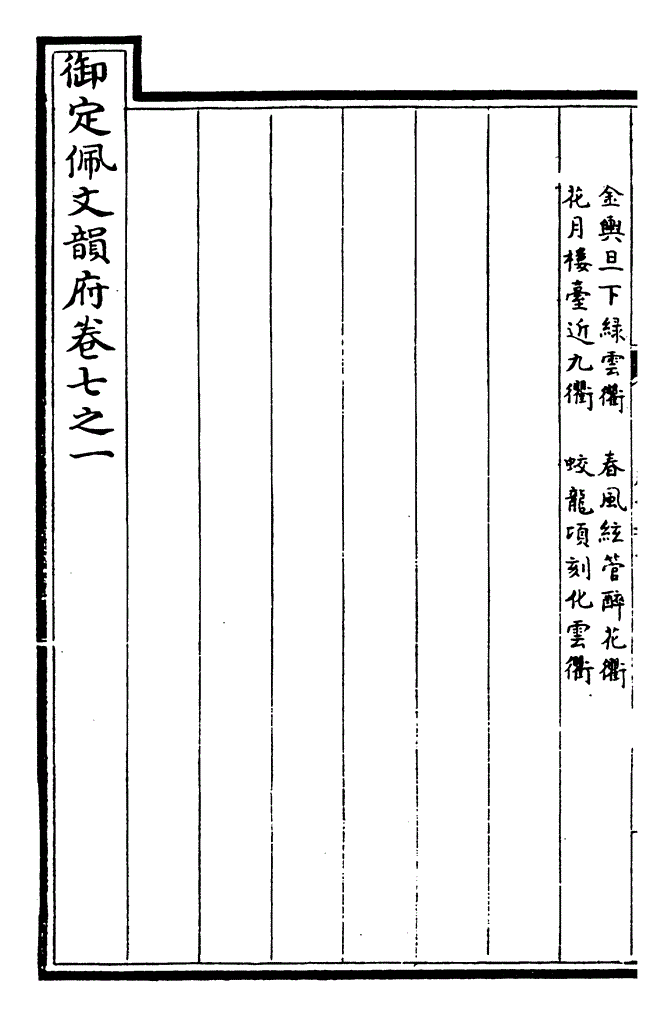 金輿旦下緑雲衢　春風絃管醉花衢
花月樓臺近九衢　蛟龍頃刻化雲衢
御定佩文韻府卷七之一